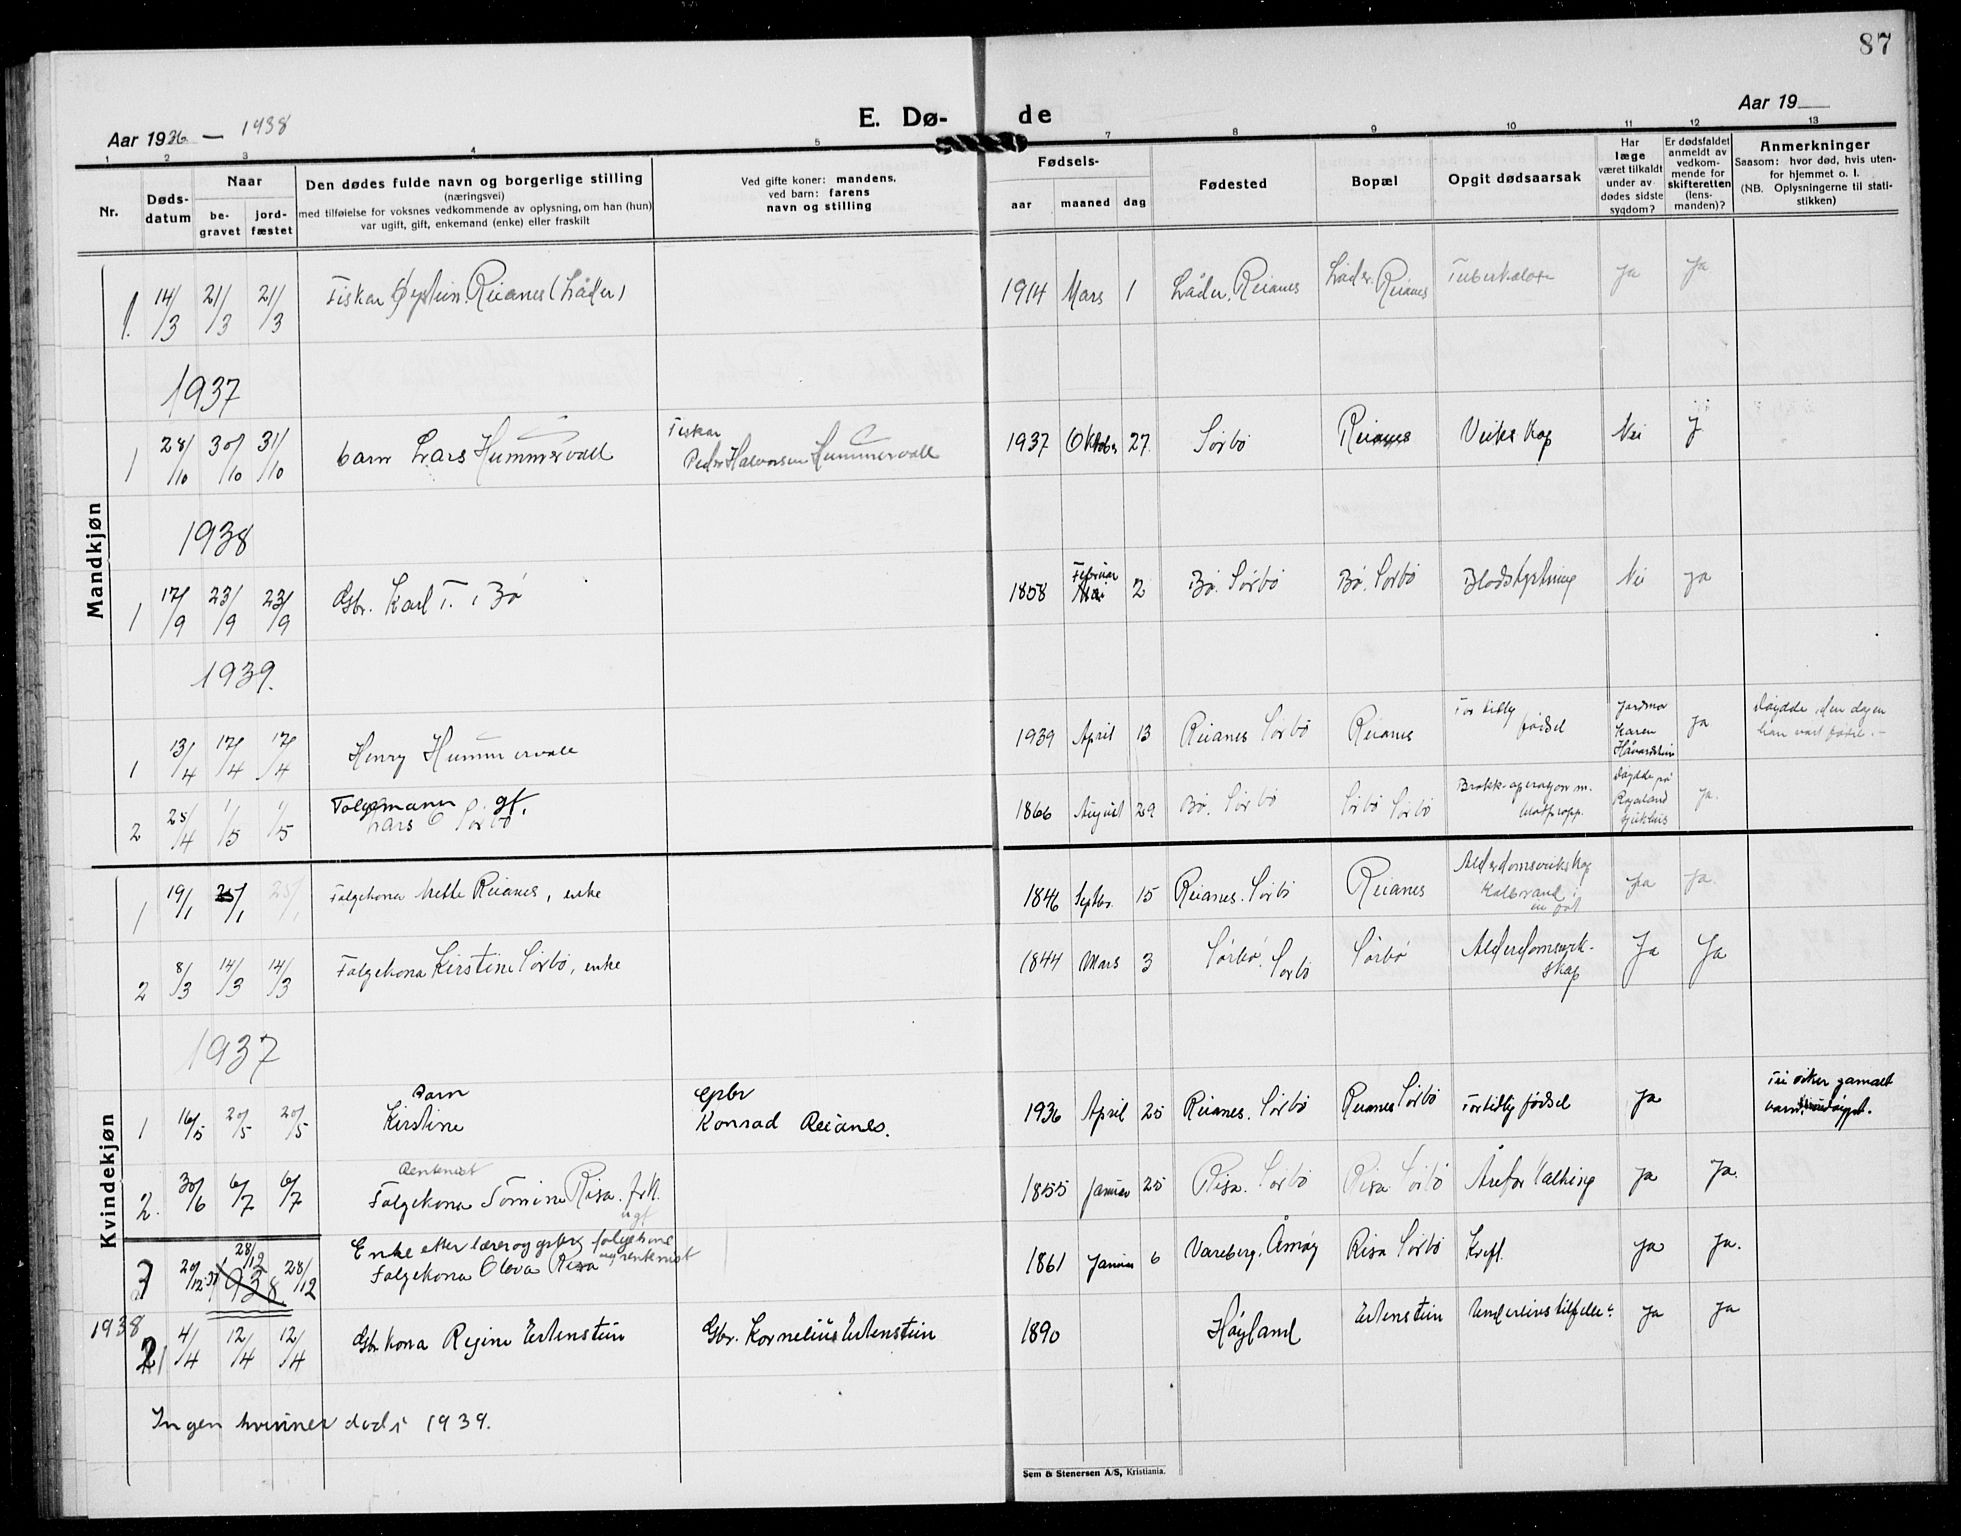 87
Aar 1936 — 1938
E. Dø-
de
Aar 19
1 2 3 4 5 7 8 9 10 11 12 13
Nr.
Døds-
datum
Naar
be-
gravet
jord-
fæstet
Den dødes fulde navn og borgerlige stilling
(næringsvei)
med tilføielse for voksnes vedkommende av oplysning, om han (hun)
var ugift, gift, enkemand (enke) eller fraskilt
Ved gifte koner: mandens,
ved barn: farens
navn og stilling
Fødsels-
aar maaned dag
Fødested
Bopæl
Opgit dødsaarsak
Har
læge
været tilkaldt
under av
dødes sidste
sygdom?
Er dødsfaldet
anmeldt av
vedkom-
mende for
skifteretten
(lens-
manden)?
Anmerkninger
Saasom: hvor død, hvis uten-
for hjemmet o. l.
(NB. Oplysningerne til stati-
stikken)
Mandkjøn
1. 14/3 21/3 21/3 Fiskar Øystein Reianes (Låder) 1914 Mars 1 Låder, Reianes Låder, Reianes Tuberkulose Ja Ja
1937
1 28/10 30/10 31/10 barn Lars Hummervoll Fiskar
Peder Halvorsen Hummervoll 1937 Oktober 27. Sørbø Reianes Veikskap Nei J
1938
1 17/9 23/9 23/9 Gbr. Karl T. Bø 1858 Februar 2 Bø. Sørbø Bø. Sørbø Blodstyrtning Nei ja
1939.
1 13/4 17/4 17/4 Henry Hummervoll 1939 April 13 Reianes Sørbø Reianes For tidlig
fødsel Jordmor
Karen
Håvardstein ja Døydde den dagen
han vart født. -
2 25/4 1/5 1/5 Folgemann gf.
Lars O Sørbø 1866 August 29 Bø. Sørbø Sørbø Sørbø Brokk-operasjon m.
blodpropp. Døydde på
Rogaland
sjukehus ja.
Kvindekjøn
1 19/1 25/1 25/1 Folgekona Mette Reianes, enke 1846 Septbr. 15 Reianes. Sørbø Reianes Alderdomsveikskap
Kolbrand i
ein fot Ja Ja.
2 8/3 14/3 14/3 Folgekona Kirstine Sørbø, enke 1844 Mars 3 Sørbø. Sørbø Sørbø Alderdomsveik-
skap Ja Ja
1937
1 16/5 20/5 20/5 Barn
Kirstine Gbr
Konrad Reianes. 1936 April 25 Reianes. Sørbø Reianes Sørbø Fortidlig fødsel Ja Tri viker gamalt
barn,
2. 30/6 6/7 6/7 Rentenist
Folgekona Tomine Risa. frk.
ugf 1855 Januar 25 Risa. Sørbø Risa Sørbø Åreforkalking Ja Ja.
3 20/12 37 28/12 938 28/12 Enke etter lærer og gbr folgekone
og rentenist
Folgekona Oleva Risa 1861 Januar 6 Vareberg. Åmøy Risa Sørbø Kreft. Ja Ja.
1938
21 4/4 12/4 12/4 Gbr kona Regine Eidenstein Gbr. Kornelius Eidenstein 1890 Høyland Eidenstein Underlivstilfelle Ja Ja
Ingen kvinner død i 1939.
Sem & Stenersen A/S, Kristiania.